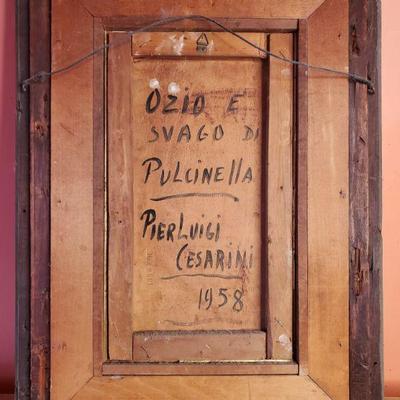 OZIO E
SVAGO DI
PULCINELLA
PIERLUIGI
CESARINI
1958